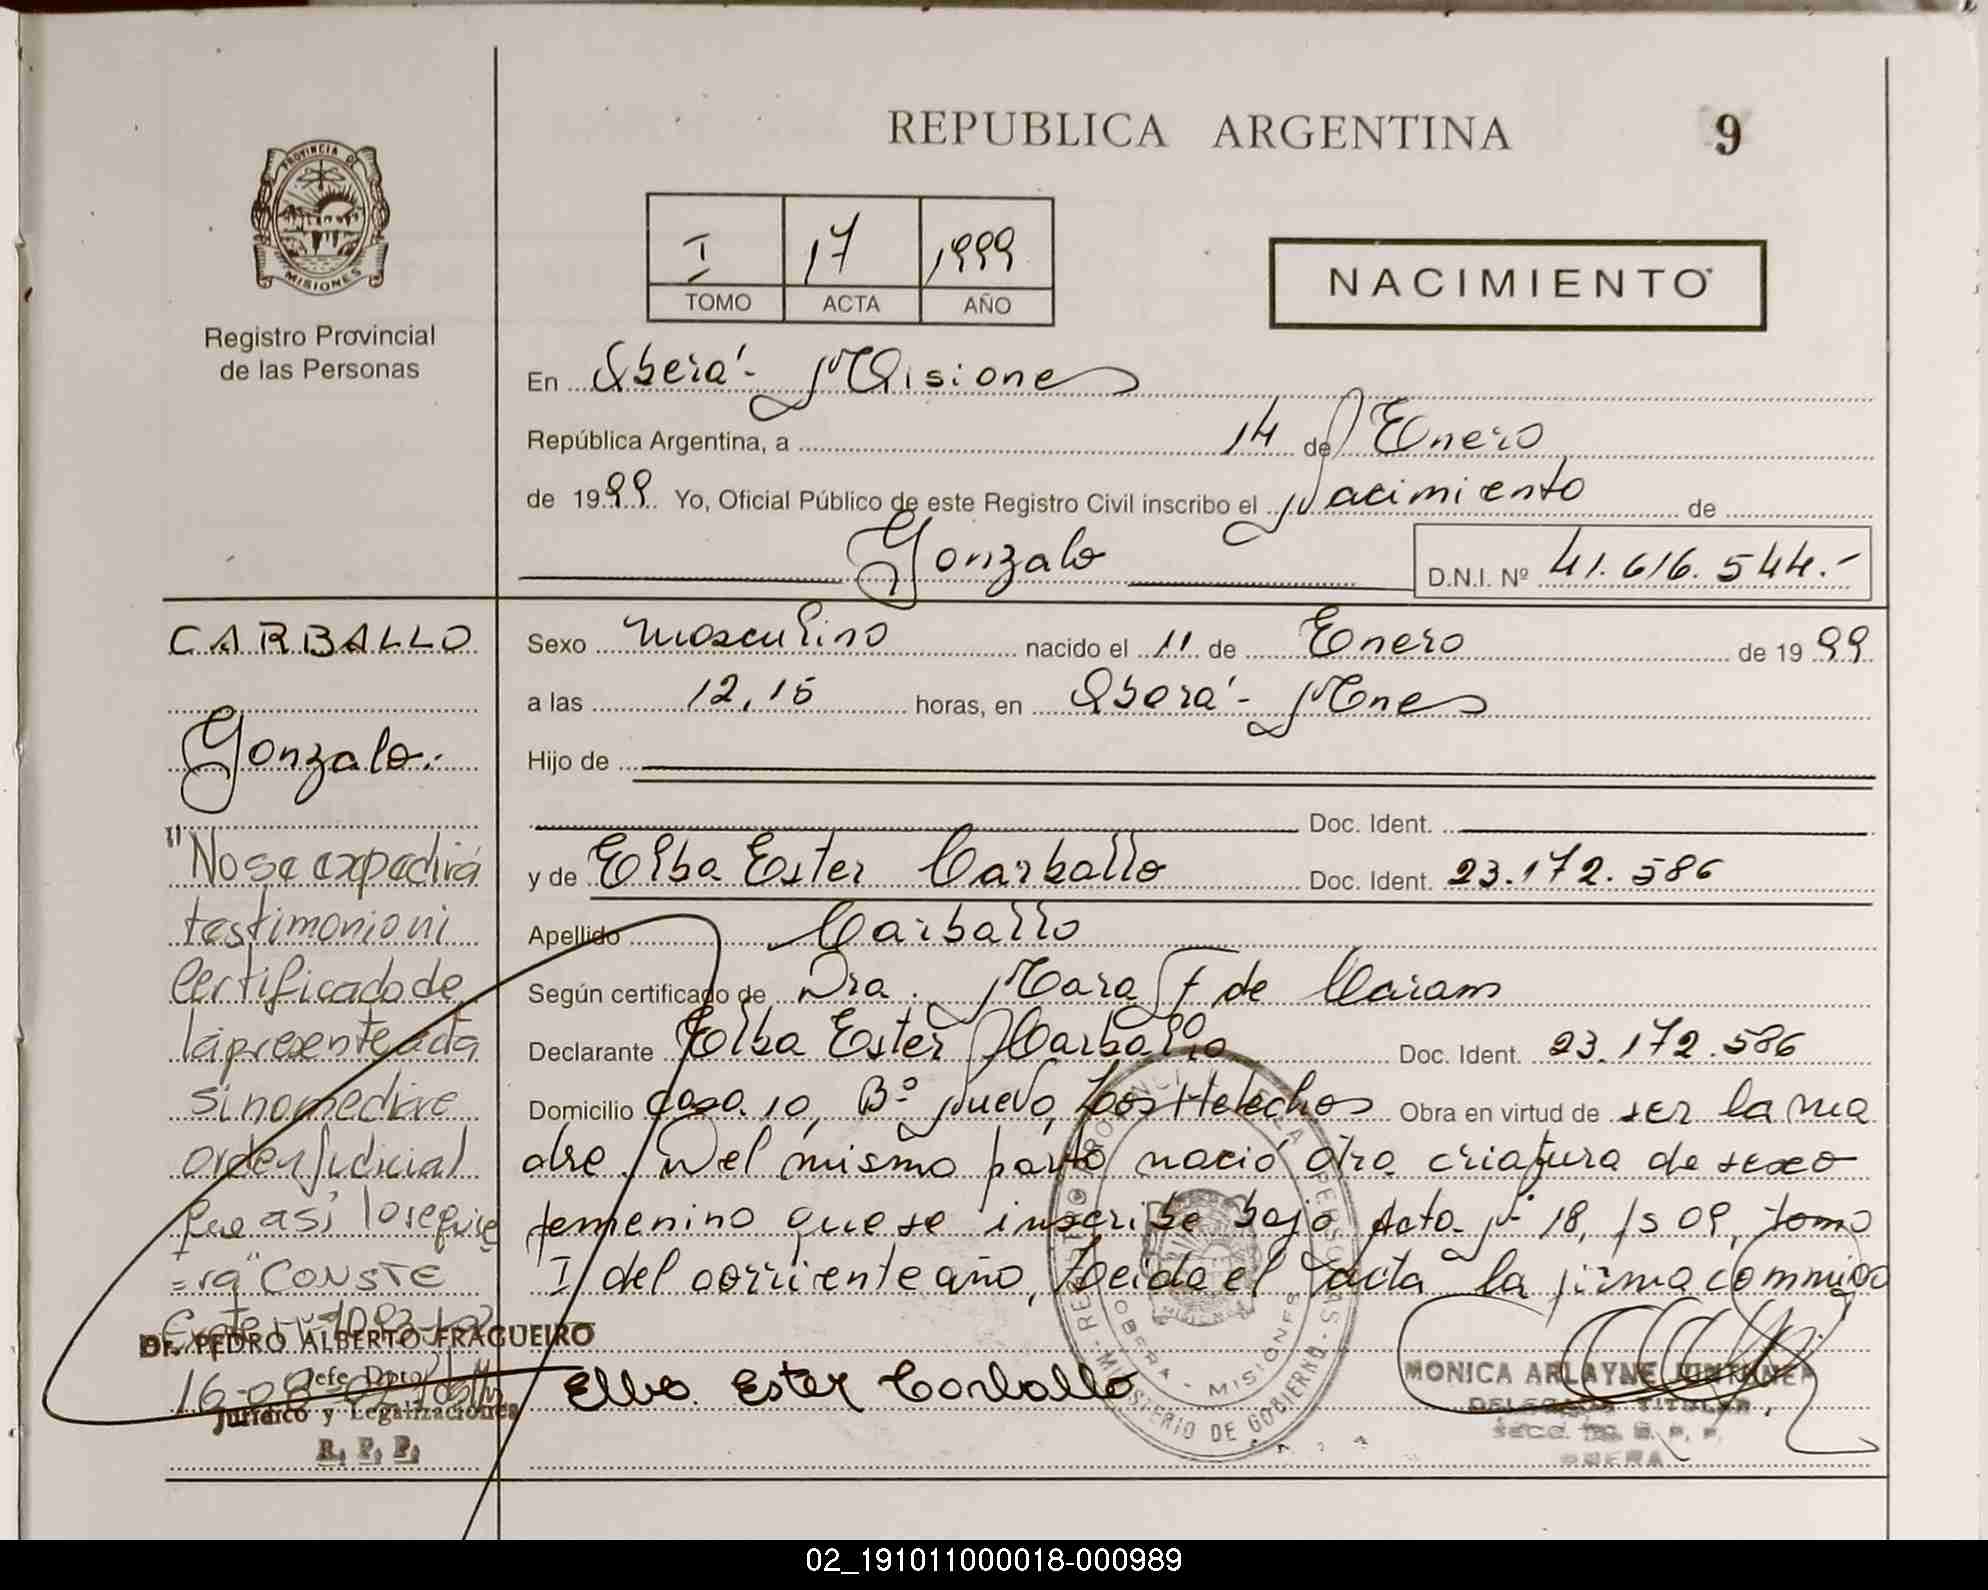 REPUBLICA ARGENTINA
9
PROVINCIA DE
MISIONES
Registro Provincial
de las Personas
I 17 1999
TOMO ACTA AÑO
NACIMIENTO
En Oberá - Misiones
República Argentina, a 14 de Enero
de 1999 Yo, Oficial Público de este Registro Civil inscribo el Nacimiento de
Gonzalo D.N.I. Nº 41.616.544.-
CARBALLO
Gonzalo.-
"No se expedirá
testimonio ni
certificado de
la presente acta
si no mediare
orden judicial
que así lo requie
=ra" CONSTE
Dr. PEDRO ALBERTO FRAGUEIRO
Jefe Dpto.
Jurídico y Legalizaciones
R. P. P.
Sexo masculino nacido el 11 de Enero de 1999
a las 12,15 horas, en Oberá - Mnes
Hijo de
Doc. Ident.
y de Elba Ester Carballo Doc. Ident. 23.172.586
Apellido Carballo
Según certificado de Dra. Mara F de
Declarante Elba Ester Carballo Doc. Ident. 23.172.586
Domicilio casa 10, Bº Nuevo, Los Helechos Obra en virtud de ser la ma
dre. Del mismo parto nació otra criatura de sexo
femenino que se inscribe bajo Acta Nº 18, fs 09, tomo
I del corriente año, leída el acta la firma conmigo
Elba Ester Carballo
REGISTRO PROVINCIAL DE LAS PERSONAS
MINISTERIO DE GOBIERNO
OBERA - MISIONES
MONICA ARLAYNE
DELEGADA TITULAR
OBERA
02_191011000018-000989